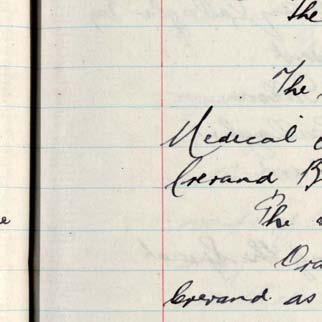 the
The
Medical
Crerand B
The
Ora
Crerand as